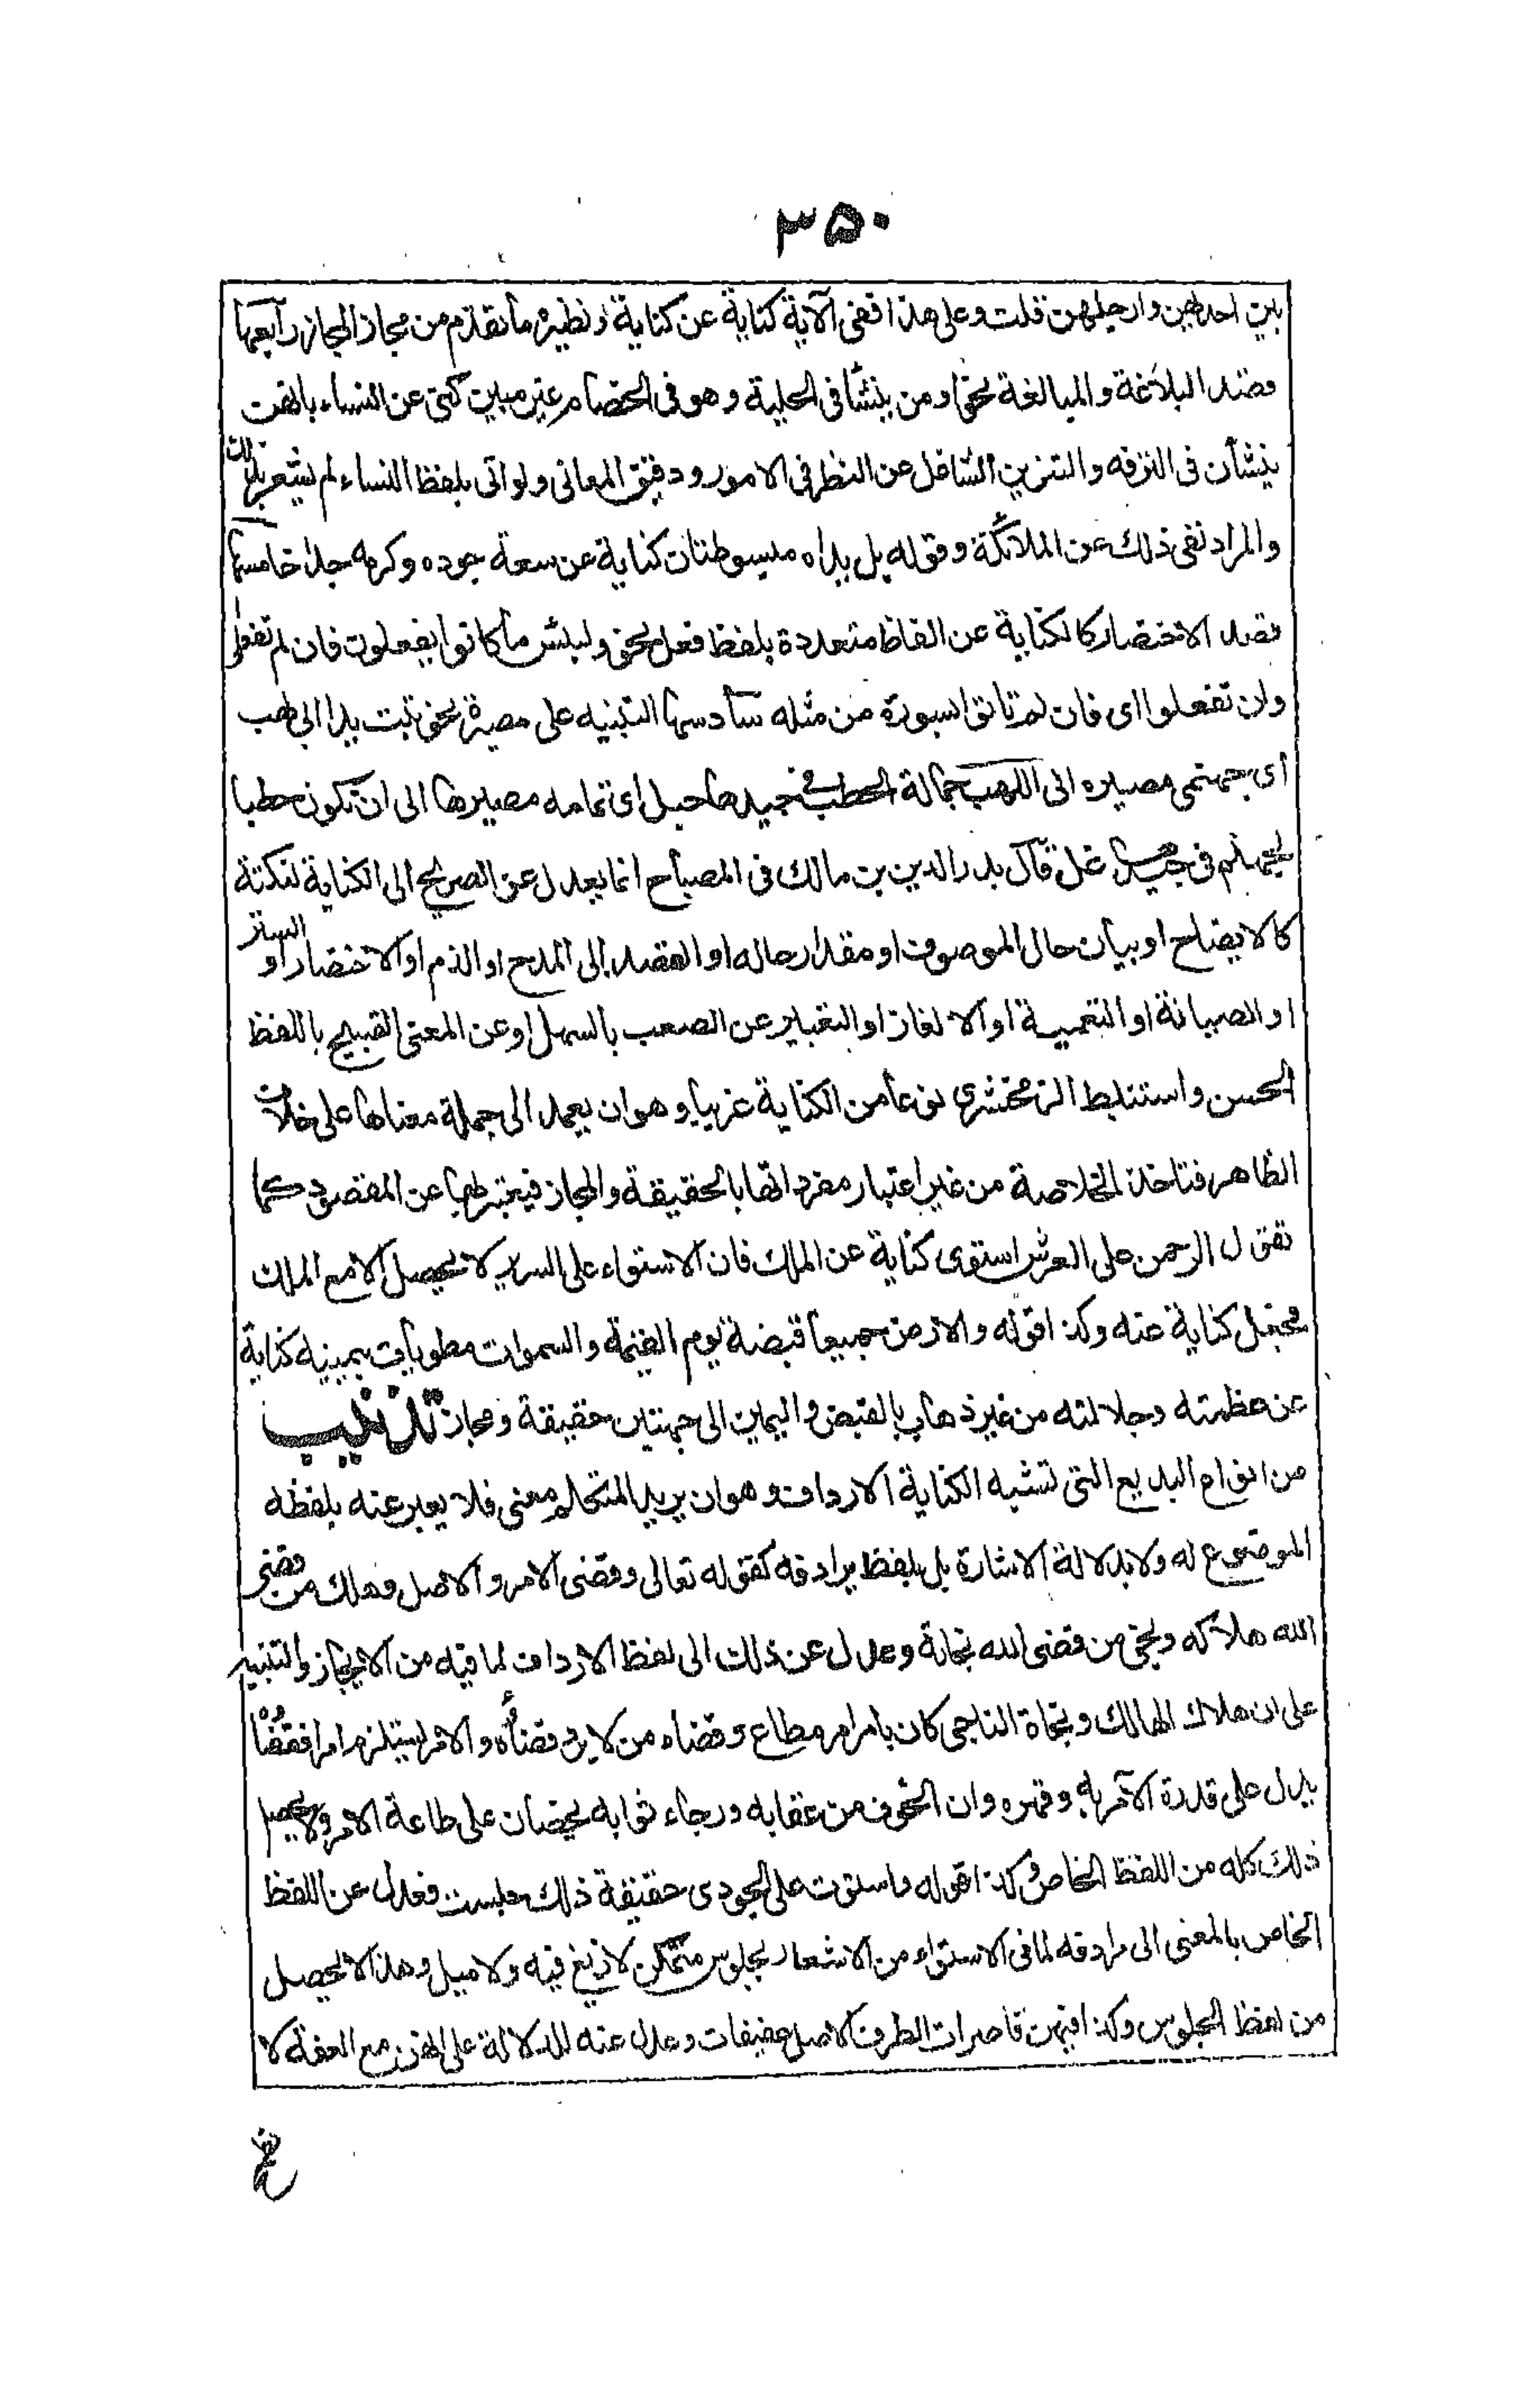 ۳۵۰
بين ايديهن وارجلهن قلت وعلى هذا ففى الآية كناية عن كناية ونظيره ما تقدم من مجاز المجاز رابعها
قصد البلاغة والمبالغة نحو اومن ينشأ فى الحلية وهو فى الخصام غير مبين كنى عن النساء بانهن
ينشأن فى الترفه والتزين الشاغل عن النظر فى الامور ودقيق المعانى ولو اتى بلفظ النساء لم يشعر بذلك
والمراد نفى ذلك عن الملائكة وقوله بل يداه مبسوطتان كناية عن سعة جوده وكرمه جدا خامسها
قصد الاختصار كالكناية عن الفاظ متعددة بلفظ فعل نحو ولبئس ما كانوا يفعلون فان لم تفعلوا
ولن تفعلوا اى فان لم تاتوا بسورة من مثله سادسها التنبيه على مصيره نحو تبت يدا ابى لهب
اى جهنمى مصيره الى اللهب حمالة الحطب فى جيدها حبل اى نمامه مصيرها الى ان تكون حطبا
لجهنم فى جيدها غل قال بدر الدين بن مالك فى المصباح انما يعدل عن الصريح الى الكناية لنكتة
كالايضاح او بيان حال الموصوف او مقدار حاله او القصد الى المدح او الذم او الاختصار او الستر
او الصيانة او التعمية او الالغاز او التعبير عن الصعب بالسهل او عن المعنى القبيح باللفظ
الحسن واستنبط الزمخشرى نوعا من الكناية غريبا وهو ان يعمد الى جملة معناها على خلاف
الظاهر فتاخذ الخلاصة من غير اعتبار مفرداتها بالحقيقة والمجاز فيعبر بها عن المقصود كما
تقول الرحمن على العرش استوى كناية عن الملك فان الاستواء على السرير لا يحصل الا مع الملك
فجعل كناية عنه وكذا قوله والارض جميعا قبضته يوم القيمة والسموات مطويات بيمينه كناية
عن عظمته وجلالته من غير ذهاب بالقبض واليمين الى جهتين حقيقة ومجاز تذنيب
من انواع البديع التى تشبه الكناية الارداف وهو ان يريد المتكلم معنى فلا يعبر عنه بلفظه
الموضوع له ولا بدلالة الاشارة بل بلفظ يرادفه كقوله تعالى وقضى الامر والاصل وهلك من قضى
الله هلاكه ونجى من قضى الله نجاته وعدل عن ذلك الى لفظ الارداف لما فيه من الايجاز والتنبيه
على ان هلاك الهالك ونجاة الناجى كان بامر امر مطاع وقضاء من لا يرد قضاؤه والامر يستلزم امرا فقضاؤه
يدل على قدرة الآمر به وقهره وان الخوف من عقابه ورجاء ثوابه يحضان على طاعة الامر ولا يحصل
ذلك كله من اللفظ الخاص وكذا قوله واستوت على الجودى حقيقة ذلك جلست فعدل عن اللفظ
الخاص بالمعنى الى مرادفه لما فى الاستواء من الاشعار بجلوس متمكن لا زيغ فيه ولا ميل وهذا لا يحصل
من لفظ الجلوس وكذا فيهن قاصرات الطرف الاصل عفيفات وعدل عنه للدلالة على انهن مع العفة لا